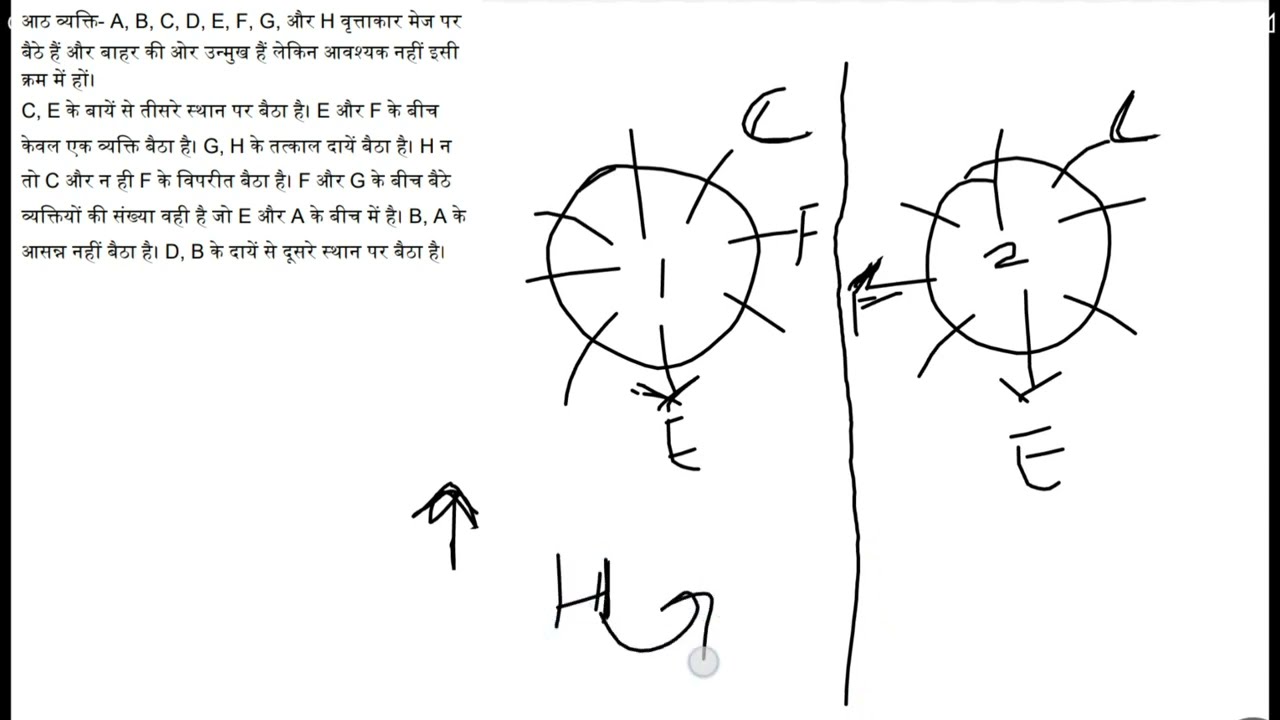 आठ व्यक्ति- A, B, C, D, E, F, G, और H वृत्ताकार मेज पर
बैठे हैं और बाहर की ओर उन्मुख हैं लेकिन आवश्यक नहीं इसी
क्रम में हों।
C, E के बायें से तीसरे स्थान पर बैठा है। E और F के बीच
केवल एक व्यक्ति बैठा है। G, H के तत्काल दायें बैठा है। H न
तो C और न ही F के विपरीत बैठा है। F और G के बीच बैठे
व्यक्तियों की संख्या वही है जो E और A के बीच में है। B, A के
आसन्न नहीं बैठा है। D, B के दायें से दूसरे स्थान पर बैठा है।
C
C
F
1
2
F
E
E
H